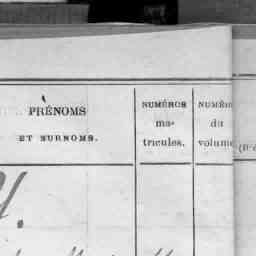 PRÉNOMS
ET SURNOMS.
NUMÉROS
ma-
tricules.
du
volume